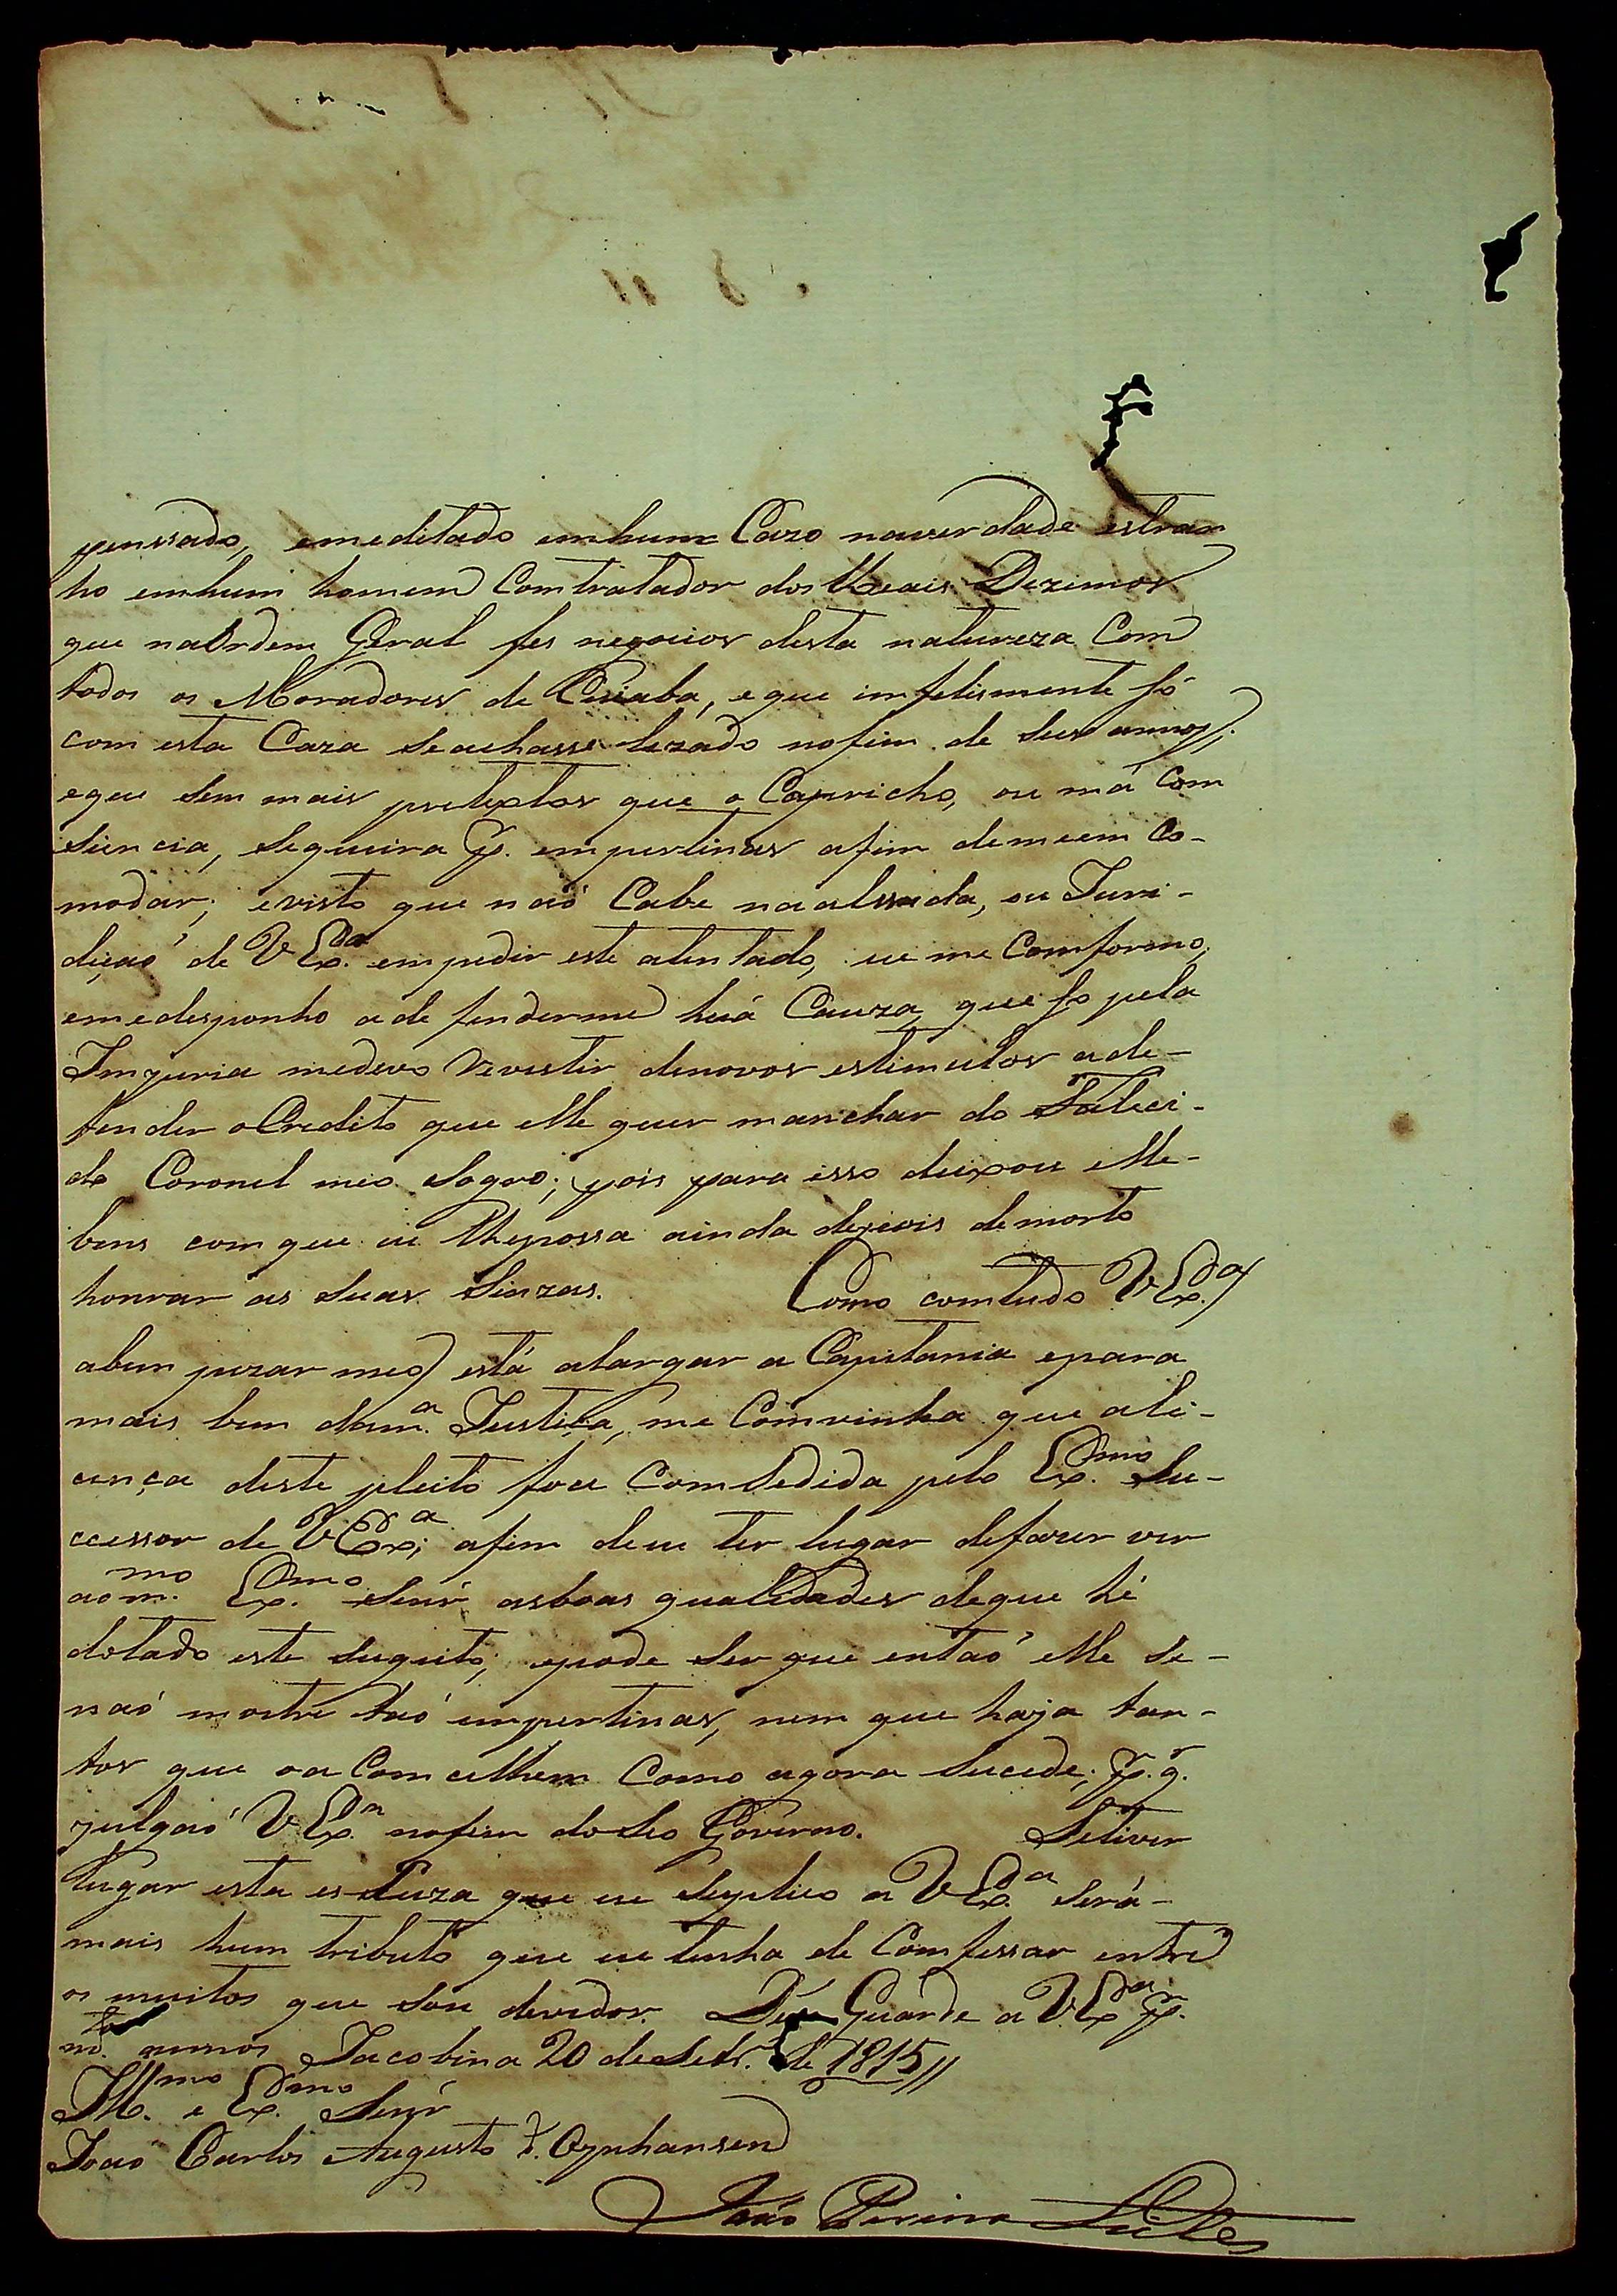 penssado, emeditado emhum Cazo naverdade estran
ho emhum homem Comtratador dos Reais Dezimos
que naOrdem Geral fes negocios desta natureza Com
todos os Moradores de Cuiaba, eque imfelismente só
com esta Caza Seachasse lezado nofim de Seus annos;
eque Sem mais pretextos que o Capricho, ou má Com
siencia, Sequeira p.r empertinas afim demeem Co-
modar; evisto que naó Cabe naalssada, ou Juri-
dicaó de VEx.a empedir este atentado, eu me Comformo,
emedesponho ade fenderme huá Cauza, que só pela
Imjuria medevo revestir denovos estimulos ade-
fender oCredito que elle quer manchar do Faleci-
do Coronel meo Sogro; pois para isso deixou elle-
bens comque eu lhepossa ainda depois demorto
honrar as Suas Sinzas. Como comtudo VEx.a
abem pezar meo está alargar a Capitania epara
mais bem dam.a Justiça, me Comvinha que ali-
cença deste pleito foce Comsedida pelo Ex.mo Su-
cessor de VEx.a; afim deeu ter lugar defazer ver
aom.mo Ex.mo Senr asboas qualidades deque hé
dotado este Sugeito; epode Ser que entaó elle Se-
naó mostre taó empertinas, nem que haja tan-
tos que oa Comcelhem Como agora Sucede; p.r q.
julgaó VEx.a nofim doSeo Governo. Setiver
lugar esta escuza que eu Suplico a VEx.a Será-
mais hum tributo que eu tenha de Comfessar entre
os muitos que Sou devedor. Deus Guarde a VEx.a p.r
m.tos annos Jacobina 20 deSetr.o de 1815//
Ill.mo e Ex.mo Senr
Joaó Carlos Augusto d'. Oeynhausend
Joaó Pereira Leite